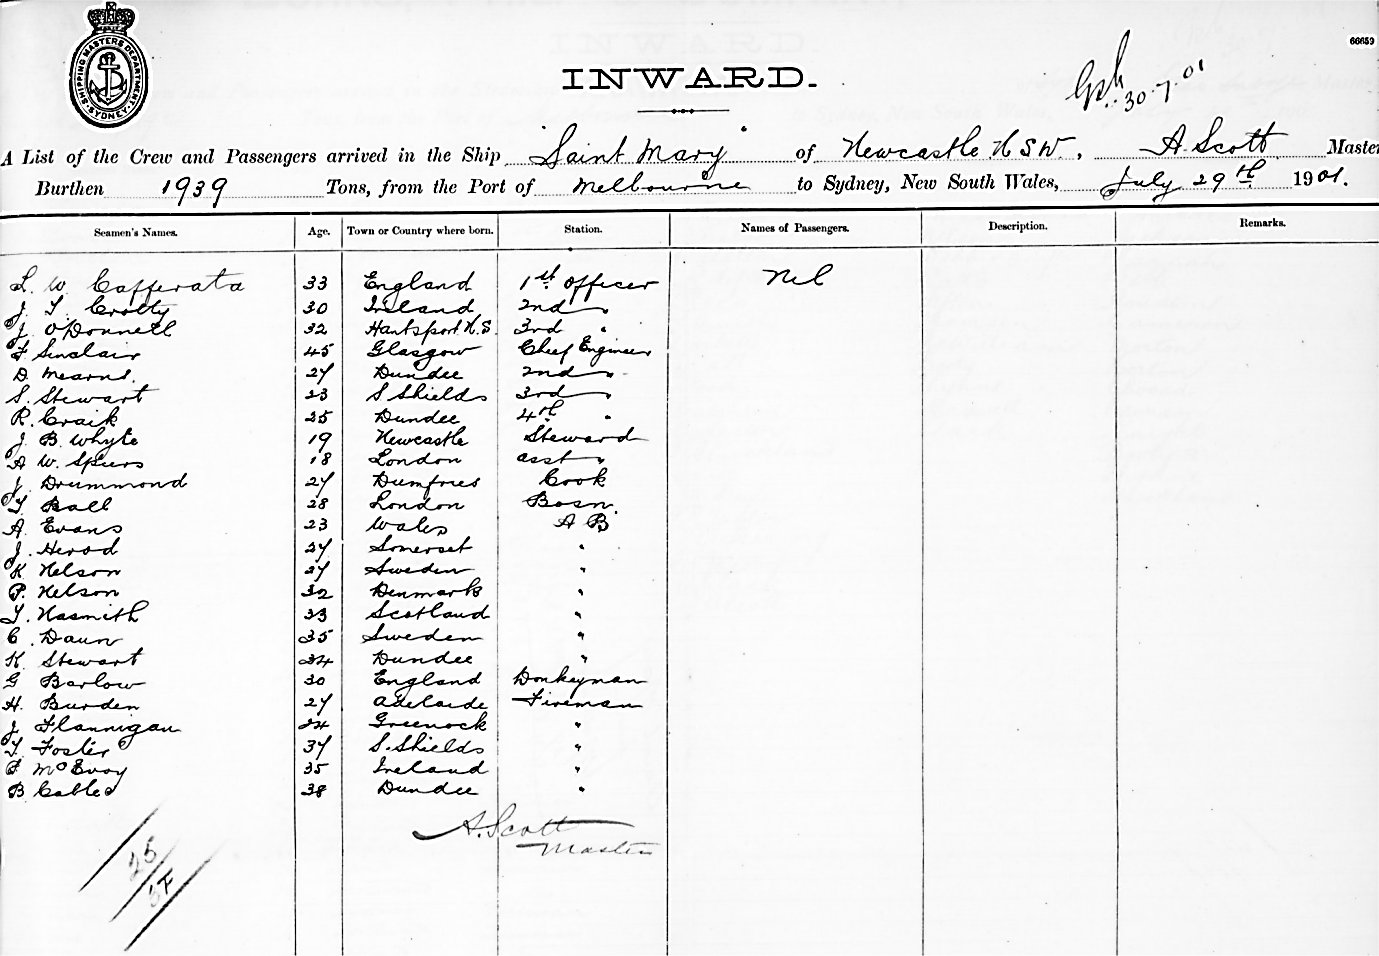 SHIPPING MASTERS DEPARTMENT SYDNEY
66659
INWARD.
30.7.01
A List of the Crew and Passengers arrived in the Ship "Saint Mary" of Newcastle N S W, A. Scott Master
Burthen 1939 Tons, from the Port of Melbourne to Sydney, New South Wales, July 29th 1901.
Seamen's Names. Age. Town or Country where born. Station. Names of Passengers. Description. Remarks.
L. W. Cafferata 33 England 1st Officer Nil
J. T. Crotty 30 Ireland 2nd "
J. O'Donnell 32 Hantsport N.S. 3rd "
F Sinclair 45 Glasgow Chief Engineer
D. Mearns. 27 Dundee 2nd "
S. Stewart 23 S Shields 3rd "
R. Craik 25 Dundee 4th "
J. B. Whyte 19 Newcastle Steward
A W. Speers 18 London asst "
J. Drummond 27 Dumfries Cook
T Ball 28 London Bosn.
A. Evans 23 Wales A B
J. Herod 27 Somerset "
K Nelson 27 Sweden "
P. Nelson 32 Denmark "
T. Nasmith 33 Scotland "
C. Daun 35 Sweden "
K Stewart 34 Dundee "
G Barlow 30 England Donkeyman
H. Burden 27 Adelaide Fireman
J. Flannigan 24 Greenock "
T. Foster 37 S. Shields "
F McEvoy 35 Ireland "
B Cables 38 Dundee "
A. Scott
Master
25